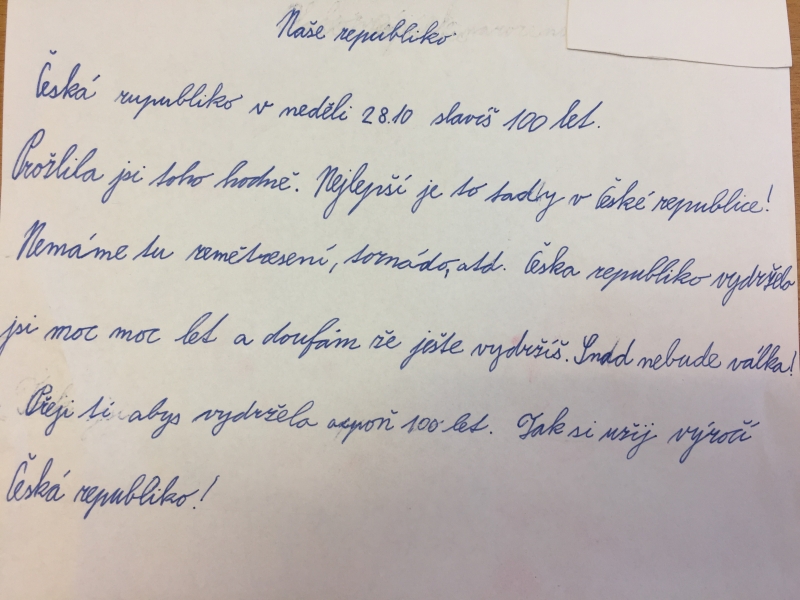 Naše republiko
Česká rupubliko v neděli 28.10 slavíš 100 let.
Prožlila jsi toho hodně. Nejlepší je to tady v České republice!
Nemáme tu zemětřesení, tornádo, atd. Česka republiko vydržela
jsi moc moc let a doufám že ješte vydržíš. Snad nebude válka!
Přeji ti abys vydržela aspoň 100 let. Tak si užij výročí
Česká republiko!